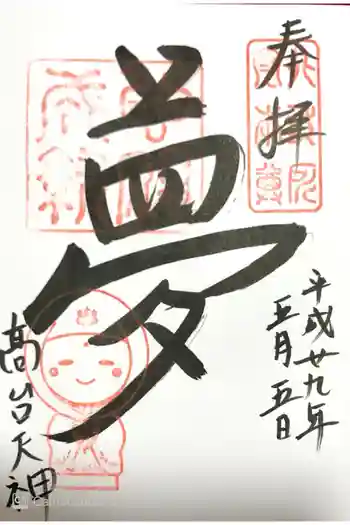 奉拝
平成廿九年
五月五日
夢
高台天神